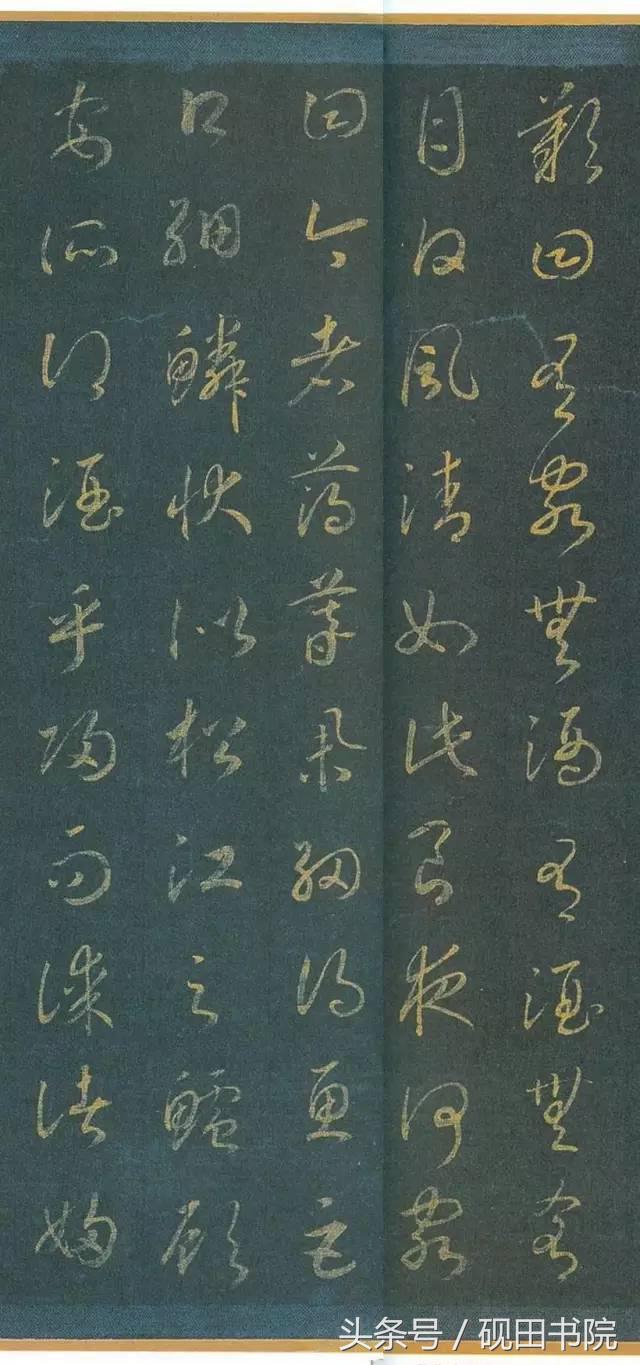 歎曰有客無酒有酒無肴
月白風清如此良夜何客
曰今者薄暮舉網得魚巨
口細鱗狀似松江之鱸顧
安所得酒乎歸而謀諸婦
头条号 / 砚田书院